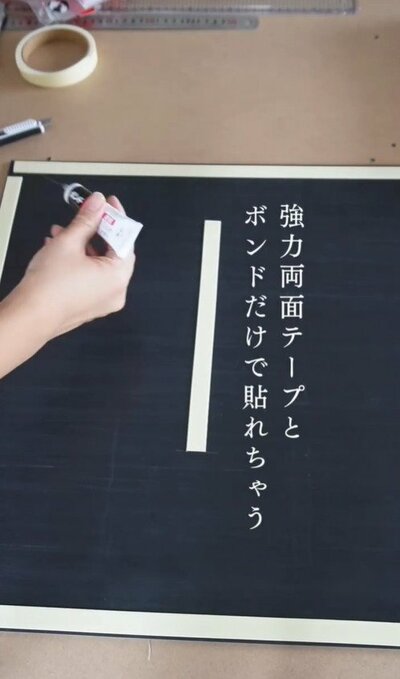 強力両面テープと
ボンドだけで貼れちゃう